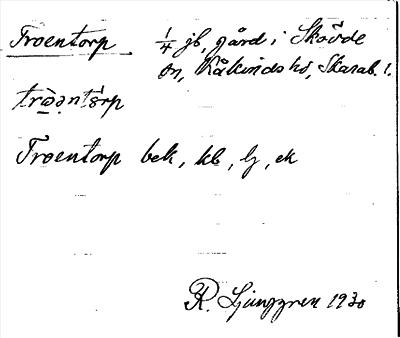 Troentorp ¼ jb, gård i Skövde
sn, Kåkinds hd, Skarab. l.
Troentorp bek, kb, lj, ek
R. Ljunggren 1930